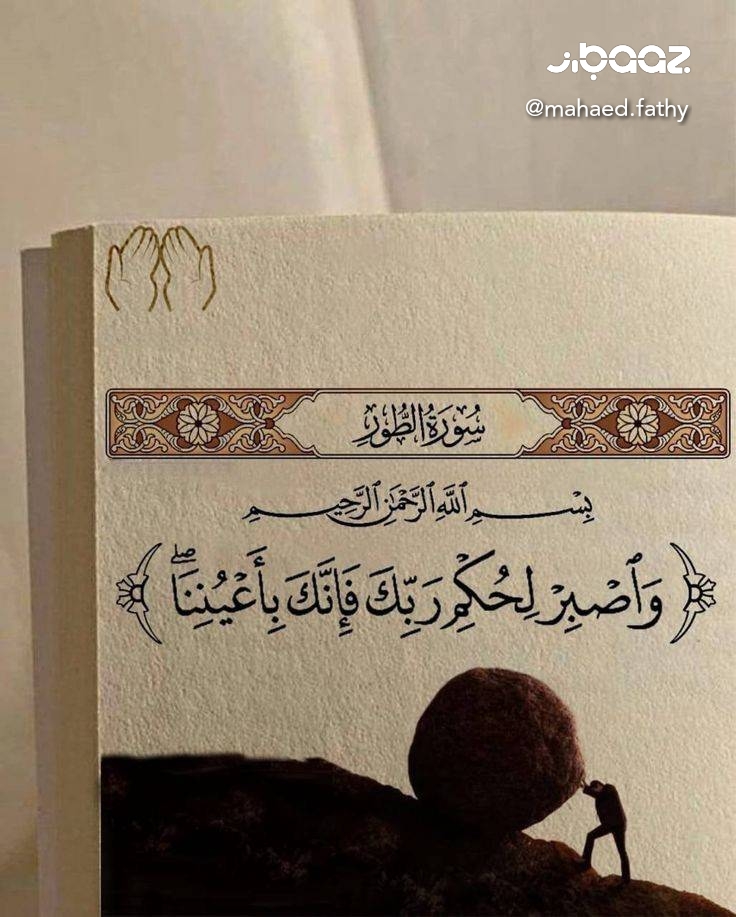 باز.baaz
@mahaed.fathy
سُورَةُ الطُّورِ
بِسْمِ ٱللَّهِ ٱلرَّحْمَٰنِ ٱلرَّحِيمِ
﴿وَٱصْبِرْ لِحُكْمِ رَبِّكَ فَإِنَّكَ بِأَعْيُنِنَا ۖ﴾